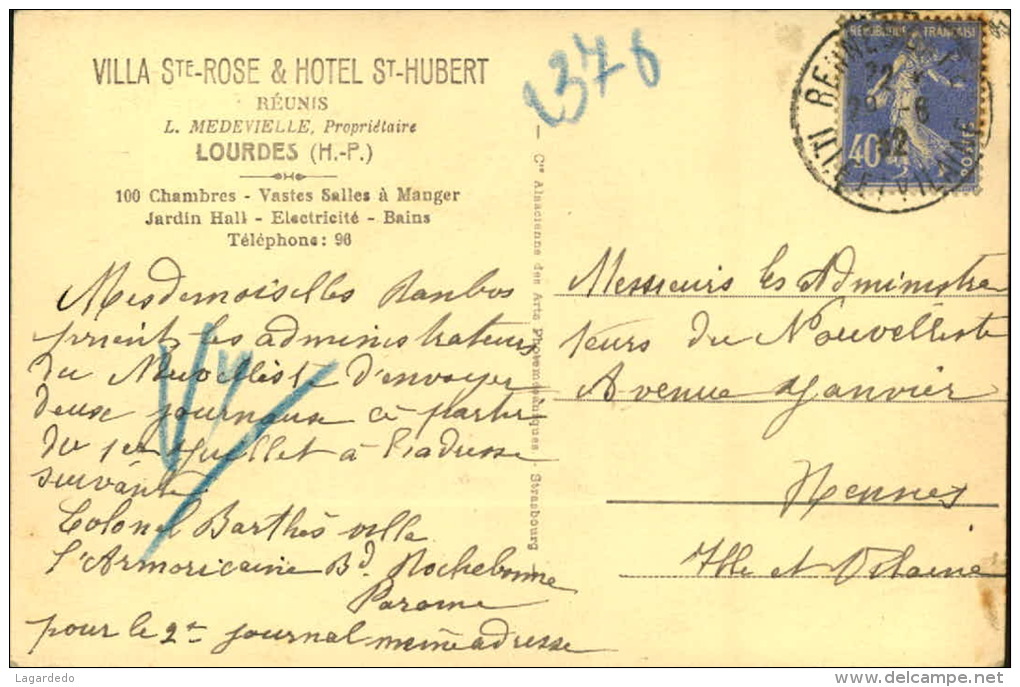 VILLA STE-ROSE & HOTEL ST-HUBERT
RÉUNIS
L. MEDEVIELLE, Propriétaire
LOURDES (H.-P.)
100 Chambres - Vastes Salles à Manger
Jardin Hall - Electricité - Bains
Téléphone: 96
376
Mesdemoiselles Ranbos
prient les administrateurs
du Nouvelliste d'envoyer
deux journaux à partir
du 1er Juillet à l'adresse
suivante
Colonel Barthès villa
l'Armoricaine Bd. Rochebonne
Parame
pour le 2e journal meme adresse
Cie Alsacienne des Arts Photomécaniques - Strasbourg
REPUBLIQUE FRANÇAISE
40c
POSTE
RENNES
22
29 - 6
32
ILLE-ET-VILAINE
Messieurs les Administra
teurs du Nouvelliste
Avenue Janvier
Rennes
Ille et Vilaine
Lagardedo
delcampe.net